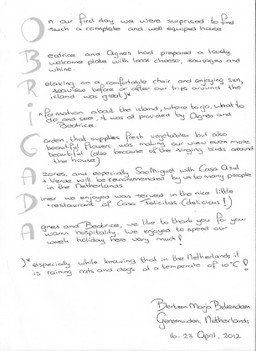 On our first day we were surprised to find
such a complete and well equiped house
Beatrice and Agnes had prepared a lovely
welcome plate with local cheese, sausages and
whine
Relaxing on a comfortable chair and enjoying sun,
seaview before or after our trips around the
island was great!)*
Information about the island, where to go, what to
do and see, it was all provided by Agnes and
Beatrice.
Garden, that supplies fresh vegetables but also
beautiful flowers was making our view even more
beautiful (also because of the singing birds around
the house)
Azores, and especially Sao Miguel with Casa Azul
e Verde will be recommended by us to many people
in the Netherlands
Diner we enjoyed was served in the nice little
restaurant of Casa Felicitas (delicious!)
Agnes and Beatrice, we like to thank you for you
warm hospitality. We enjoyed to spend our
week holiday here very much!
)* especially while knowing that in the Netherlands it
is raining cats and dogs at a temperate of 10°C!
Netherlands
16-23 April, 2012